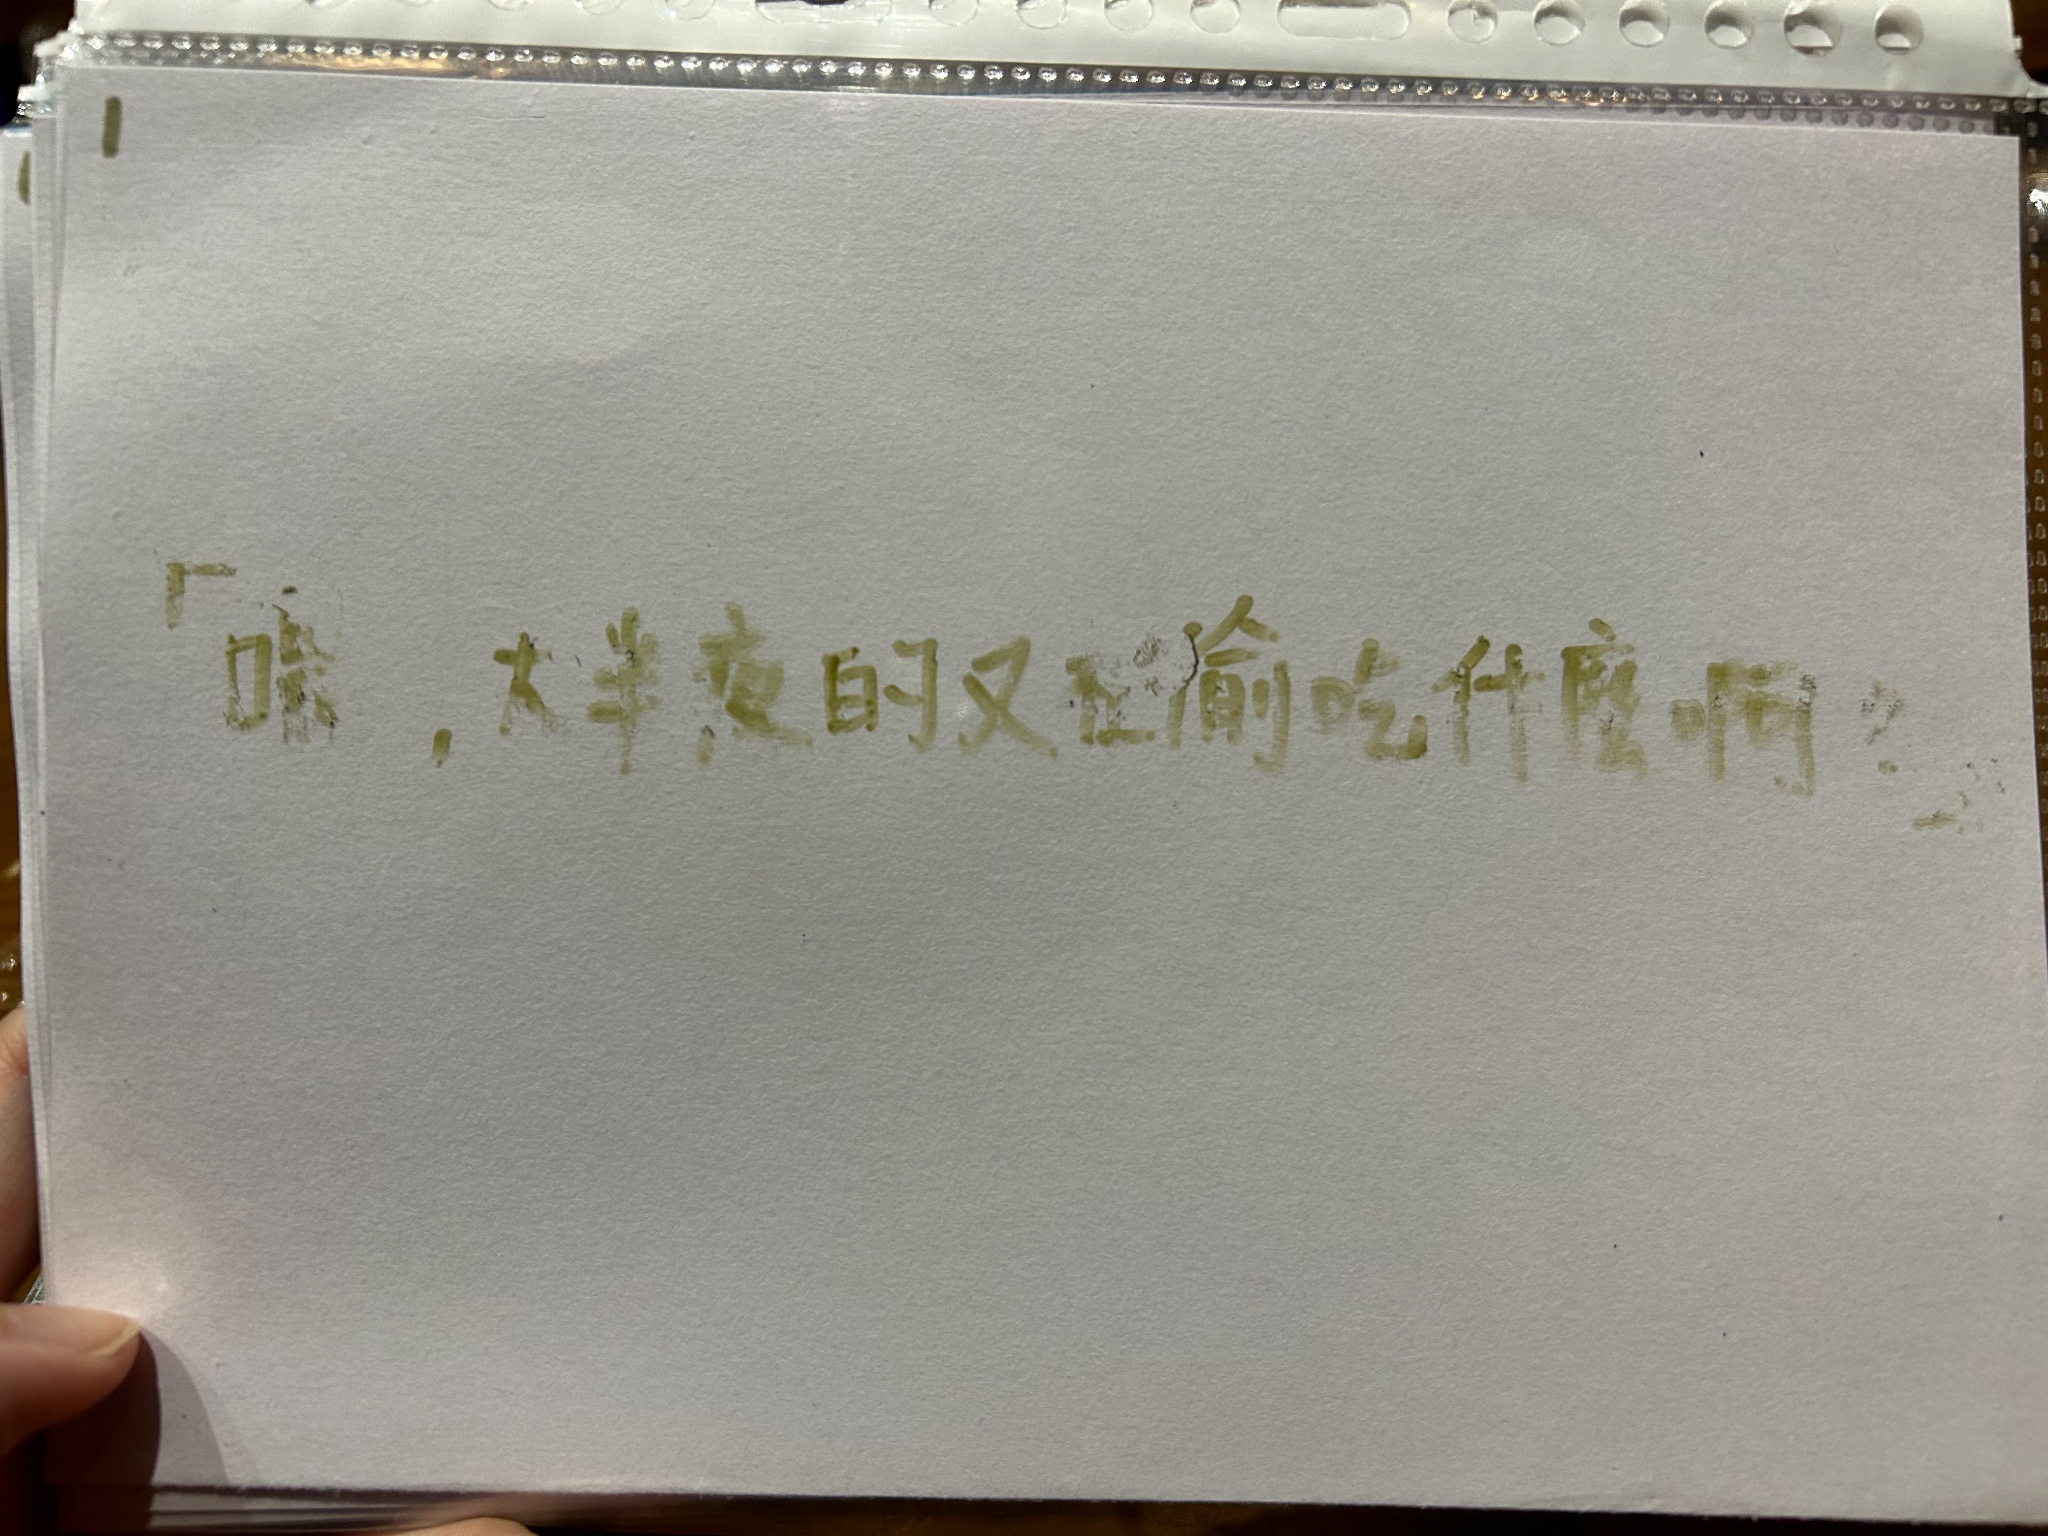 1
「喂,大半夜的又在偷吃什麼啊?」